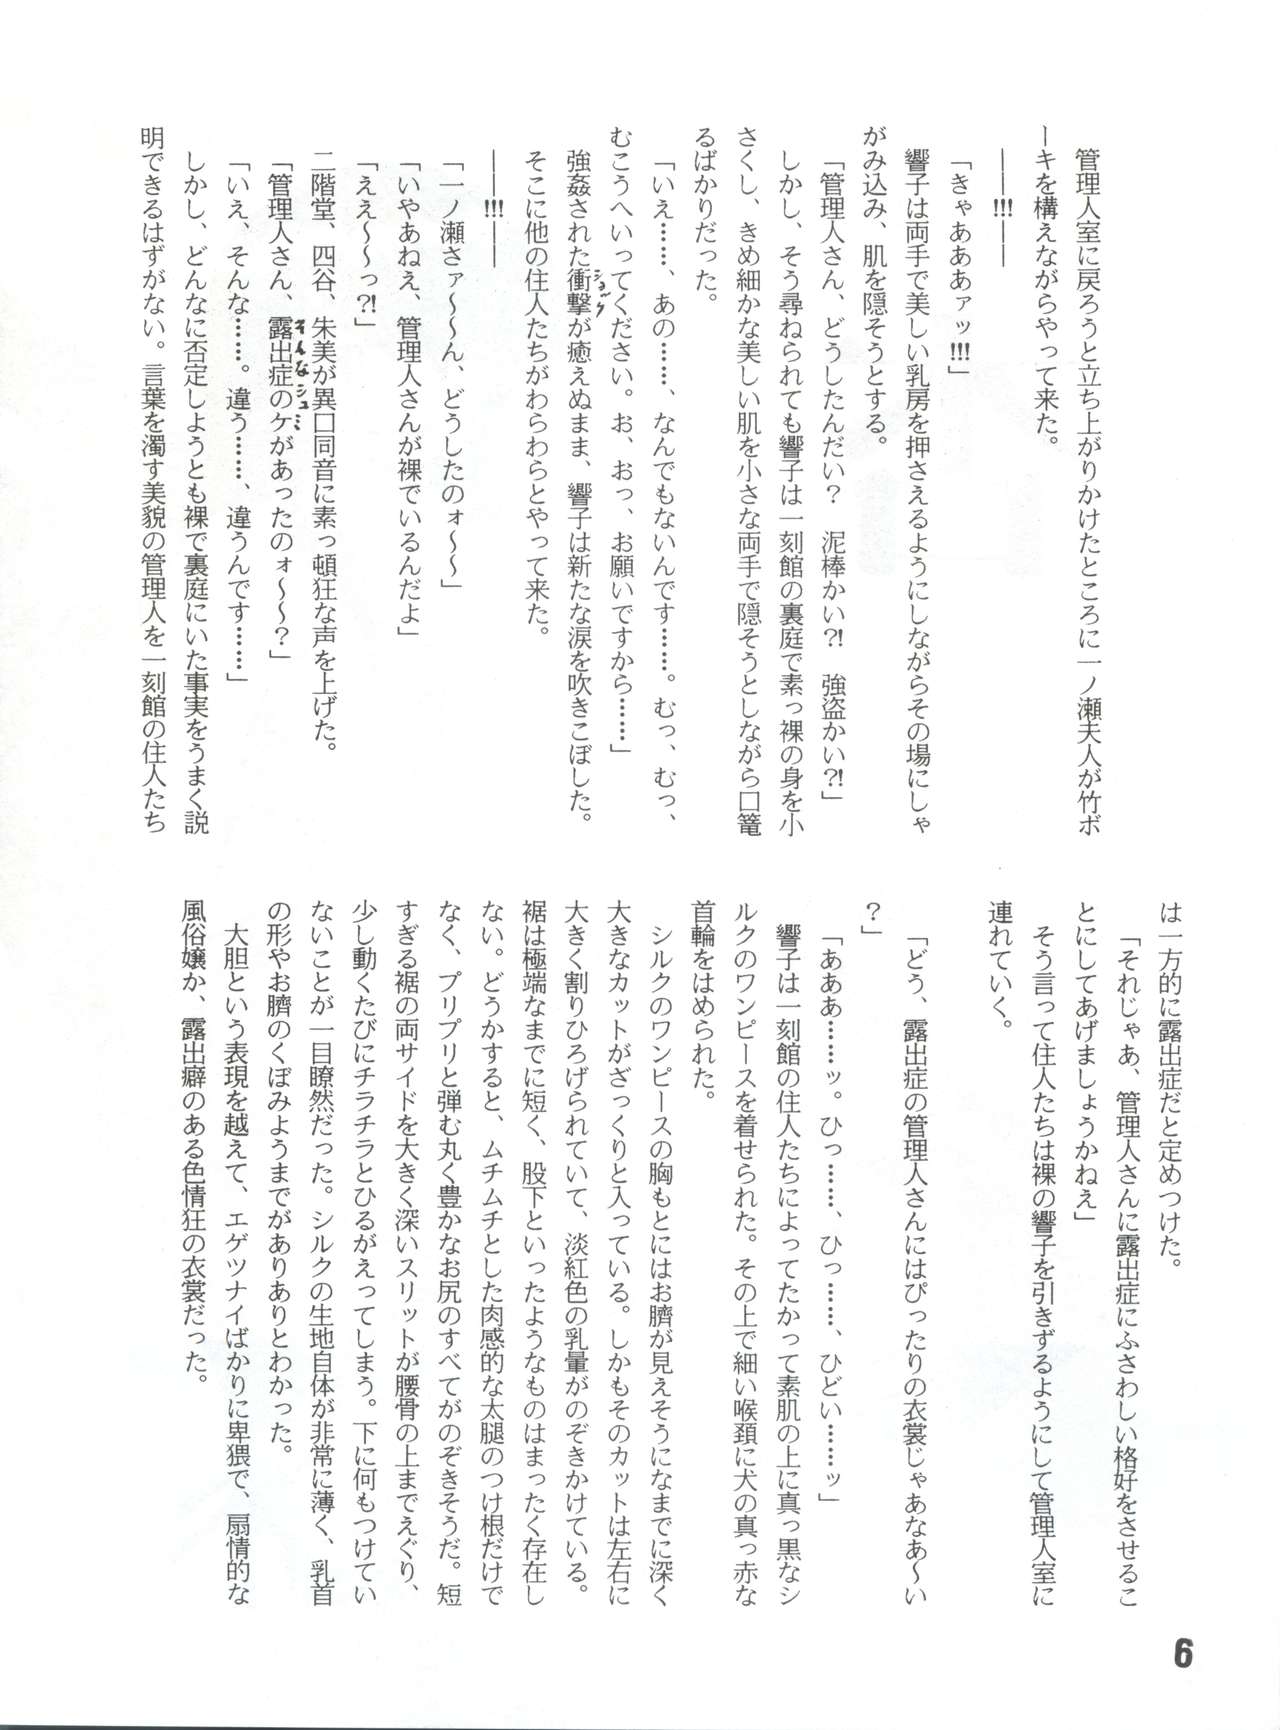 管理人室に戻ろうと立ち上がりかけたところに一ノ瀬夫人が竹ボ
ーキを構えながらやって来た。
――!!!――
「きゃあああァッ!!!」
響子は両手で美しい乳房を押さえるようにしながらその場にしゃ
がみ込み、肌を隠そうとする。
「管理人さん、どうしたんだい？　泥棒かい?!　強盗かい?!」
しかし、そう尋ねられても響子は一刻館の裏庭で素っ裸の身を小
さくし、きめ細かな美しい肌を小さな両手で隠そうとしながら口篭
るばかりだった。
「いえ……、あの……、なんでもないんです……。むっ、むっ、
むこうへいってください。お、おっ、お願いですから……」
強姦された衝撃が癒えぬまま、響子は新たな涙を吹きこぼした。
ショック
そこに他の住人たちがわらわらとやって来た。
――!!!――
「一ノ瀬さァ～～ん、どうしたのォ～～」
「いやあねえ、管理人さんが裸でいるんだよ」
「ええ～～っ?!」
二階堂、四谷、朱美が異口同音に素っ頓狂な声を上げた。
「管理人さん、露出症のケがあったのォ～～？」
そんなシュミ
「いえ、そんな……。違う……、違うんです……」
しかし、どんなに否定しようとも裸で裏庭にいた事実をうまく説
明できるはずがない。言葉を濁す美貌の管理人を一刻館の住人たち
は一方的に露出症だと定めつけた。
「それじゃあ、管理人さんに露出症にふさわしい格好をさせるこ
とにしてあげましょうかねえ」
そう言って住人たちは裸の響子を引きずるようにして管理人室に
連れていく。
「どう、露出症の管理人さんにはぴったりの衣裳じゃあなあ～い
？」
「あああ……ッ。ひっ……、ひっ……、ひどい……ッ」
響子は一刻館の住人たちによってたかって素肌の上に真っ黒なシ
ルクのワンピースを着せられた。その上で細い喉頚に犬の真っ赤な
首輪をはめられた。
シルクのワンピースの胸もとにはお臍が見えそうになまでに深く
大きなカットがざっくりと入っている。しかもそのカットは左右に
大きく割りひろげられていて、淡紅色の乳暈がのぞきかけている。
裾は極端なまでに短く、股下といったようなものはまったく存在し
ない。どうかすると、ムチムチとした肉感的な太腿のつけ根だけで
なく、プリプリと弾む丸く豊かなお尻のすべてがのぞきそうだ。短
すぎる裾の両サイドを大きく深いスリットが腰骨の上までえぐり、
少し動くたびにチラチラとひるがえってしまう。下に何もつけてい
ないことが一目瞭然だった。シルクの生地自体が非常に薄く、乳首
の形やお臍のくぼみようまでがありありとわかった。
大胆という表現を越えて、エゲツナイばかりに卑猥で、扇情的な
風俗嬢か、露出癖のある色情狂の衣裳だった。
6